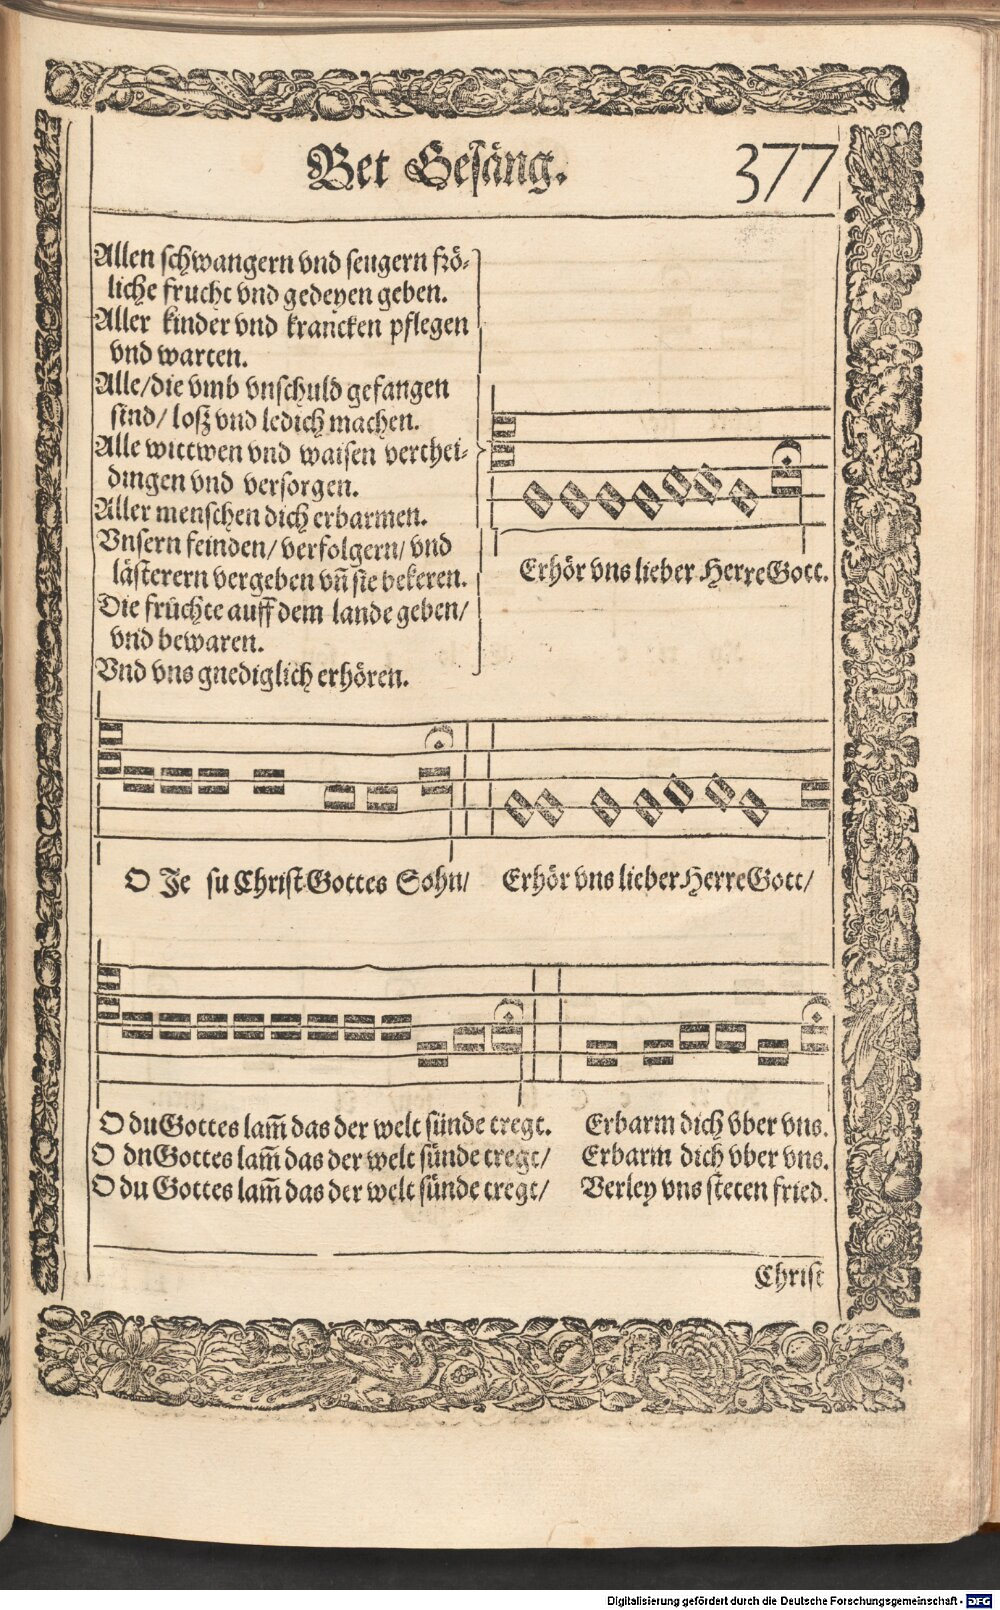 Bet Gesäng. 377
Allen schwangern vnd seugern frö-
liche frucht vnd gedeyen geben.
Aller kinder vnd krancken pflegen
vnd warten.
Alle/die vmb vnschuld gefangen
sind/ loß vnd ledich machen.
Alle wittwen vnd waisen verthei-
dingen vnd versorgen.
Aller menschen dich erbarmen.
Vnsern feinden/ verfolgern/ vnd
lästerern vergeben vn̄ sie bekeren.
Die früchte auff dem lande geben/
vnd bewaren.
Vnd vns gnediglich erhören.
Erhör vns lieber Herre Gott.
O Je su Christ Gottes Sohn/ Erhör vns lieber Herre Gott/
O du Gottes lam̄ das der welt sünde tregt. Erbarm dich vber vns.
O dn Gottes lam̄ das der welt sünde tregt/ Erbarm dich vber vns.
O du Gottes lam̄ das der welt sünde tregt/ Verley vns steten fried.
Christ
Digitalisierung gefördert durch die Deutsche Forschungsgemeinschaft - DFG